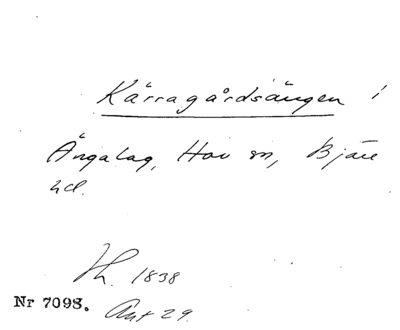 Kärragårdsängen i
Ängalag, Hov sn, Bjäre
hd.
Th. 1838
Nr 7098. Ant 29.